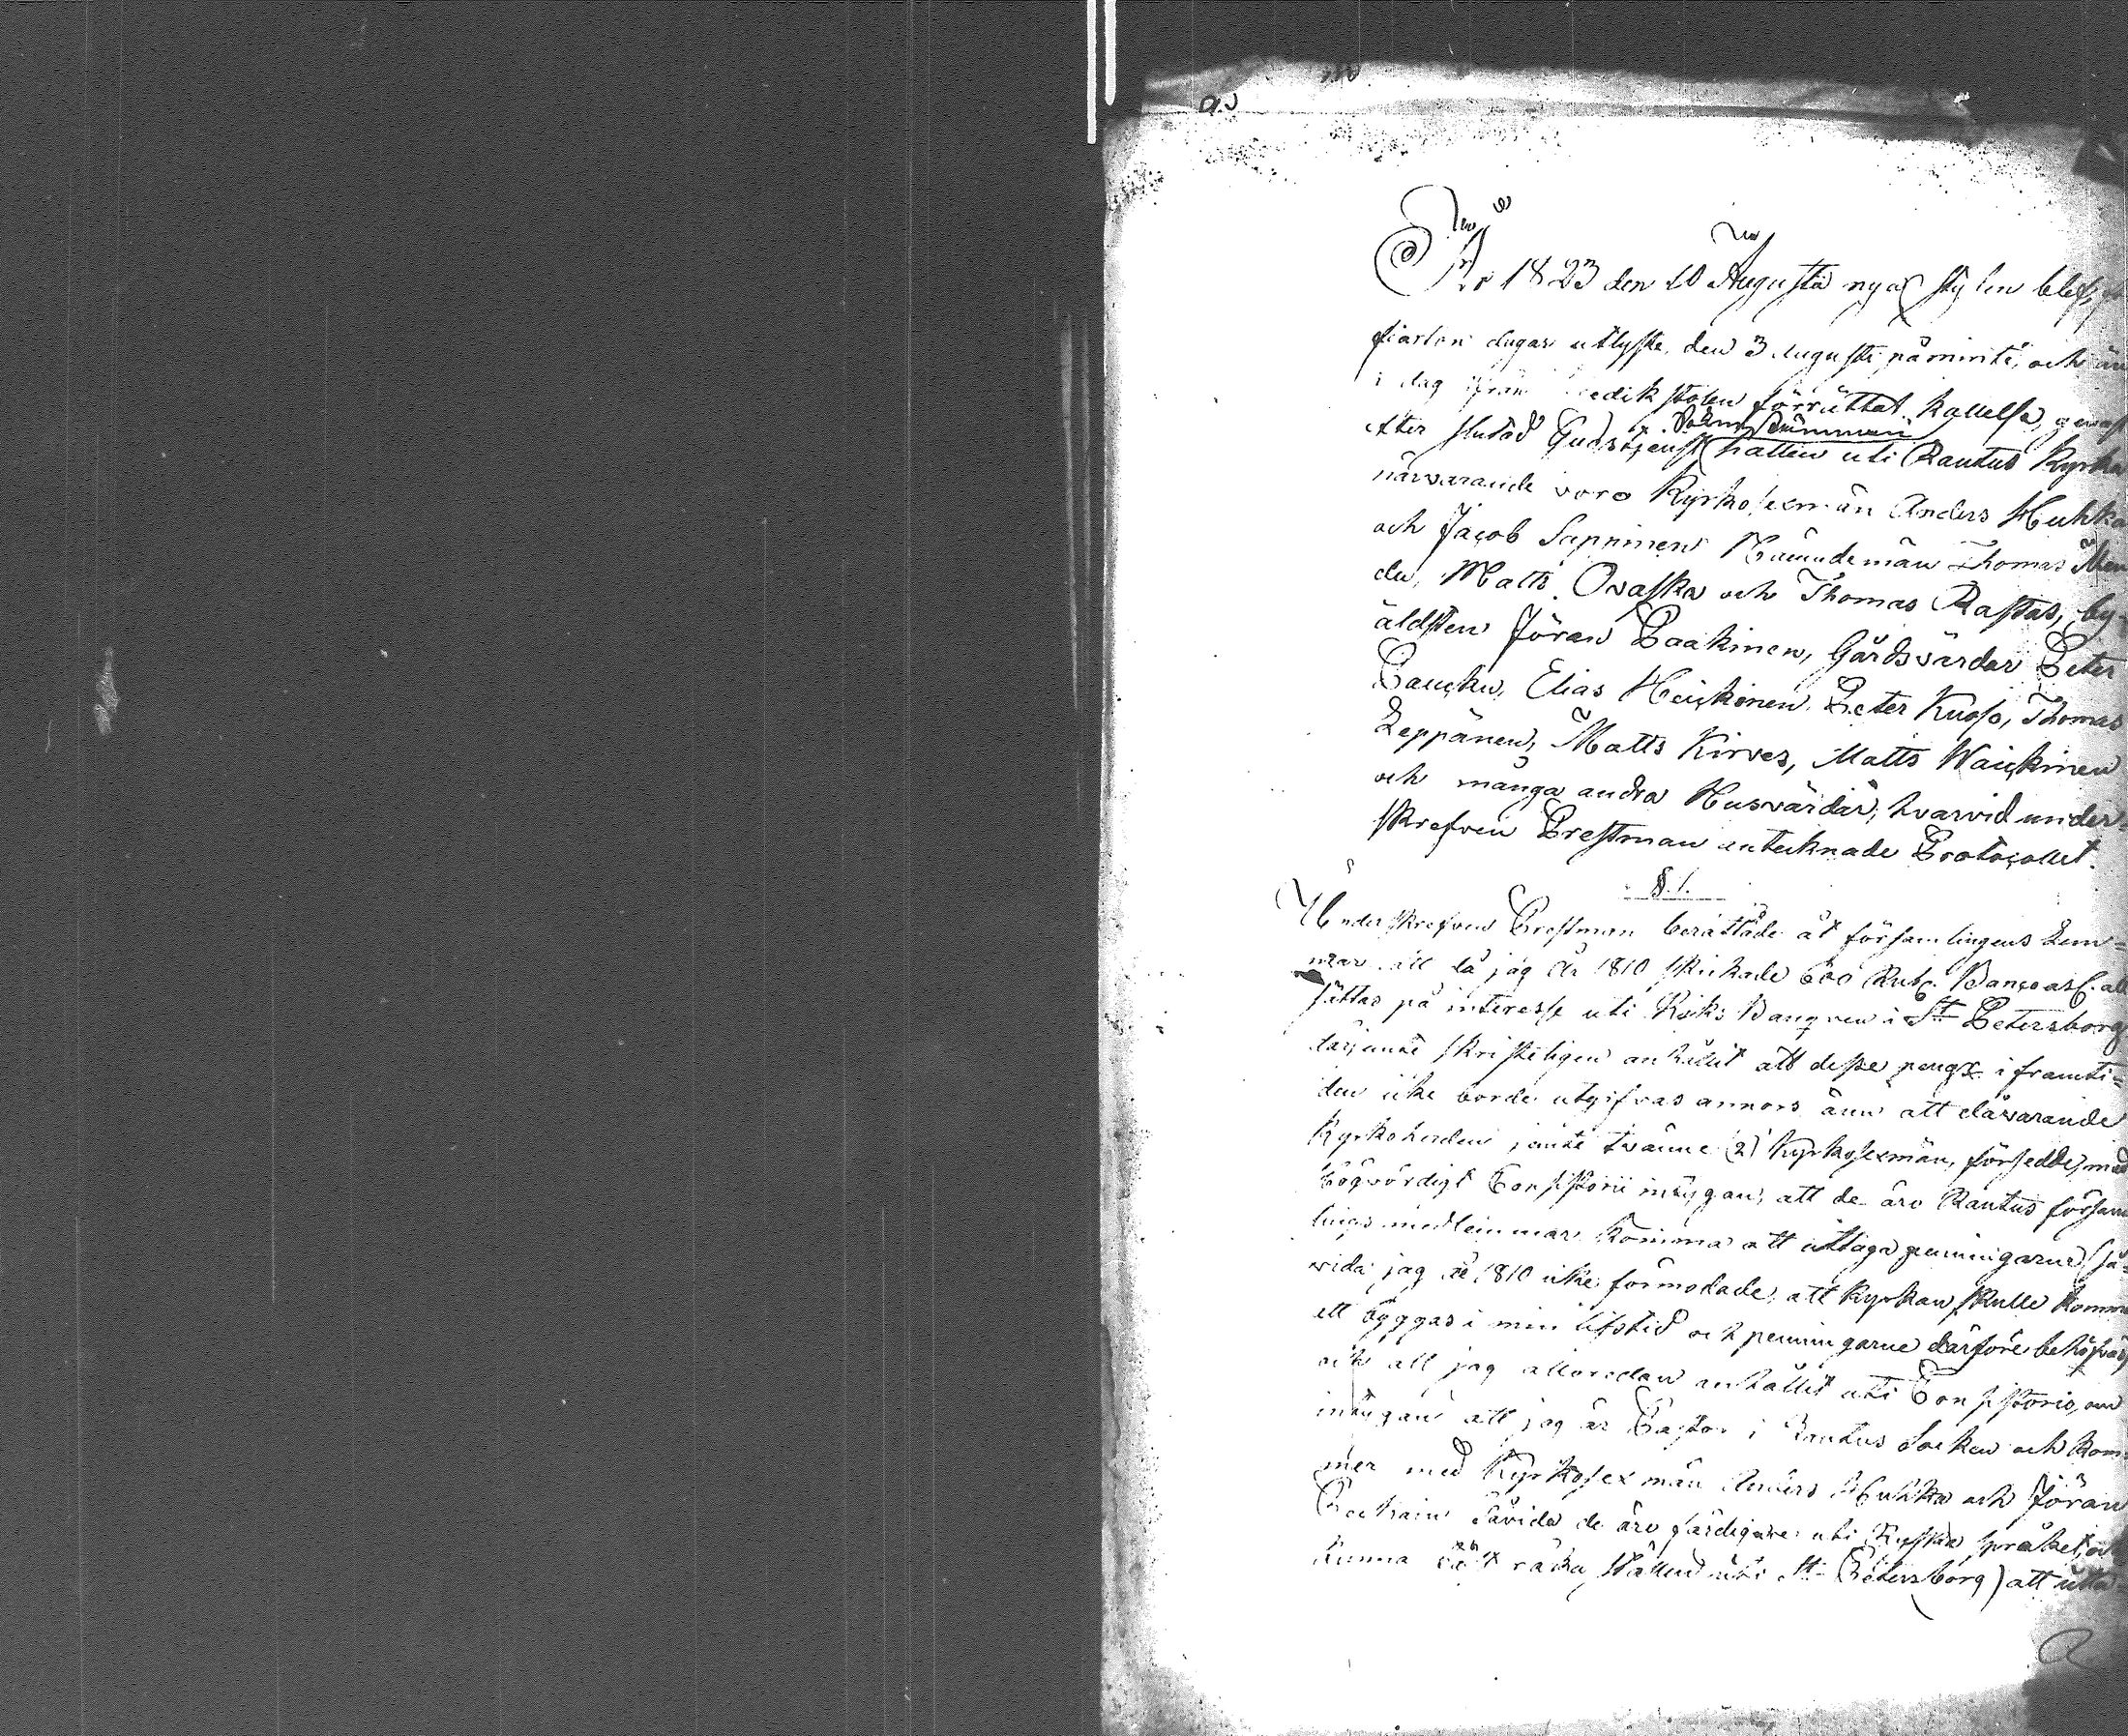 År 1823 den 10 Augusti nya stylen blef,
fiorton dagar utlyste, den 3 Augusti påminte, och än
i dag ifrån Predikstolen förrättat kallelse, genast
Sokne Stämman
efter slutad Gudstjenst hållen uti Rautus Kyrka
närvarande voro Kyrkosexmän Anders Huhka
och Jacob Sapninen Nämndemän Thomas
Matts Ovaska och Thomas Rastas, by-
äldsten Jöran Paakinen, Gårdsvärdar Peter
Paucku, Elias Heickinen, Peter Kuoso, Thomas
Leppänen, Matts Kirves, Matts Waickinen
och många andra Husvärdar, hvarvid under-
skrefven Prestman antecknade Protocollet.
§. 1.
Underskrefven Prestman berättade åt församlingens Lem=
mar att då jag År 1810 skickade 600 Rub. Banco ass. att
sättas på interesse uti Riks Banquen i St Petersborg
därjemte skrifteligen anhållit att desse pengr i framti=
den icke borde utgifvas annors änn att dåvarande
Kyrkoherden jemte tvänne (2) Kyrkosexmän, försedde med
Högvördigt Consistorii intygan, att de äro Rautus försam
lings medlemmar komma att uttaga penningarne (så=
vida jag År 1810 icke förmodade, att Kyrkan skulle komma
att byggas i min lifstid och penningarne därföre behöfvas)
och att jag alloredan anhållit uti Consistorio, om
intygan att jag är Pastor i Rautus Socken och kom-
mer med Kyrkosexmän Anders Huhka och Jöran
såvida de äro färdigare uti Ryska språket, och
kunna rätt räcka ställen uti St Petersborg) att utta